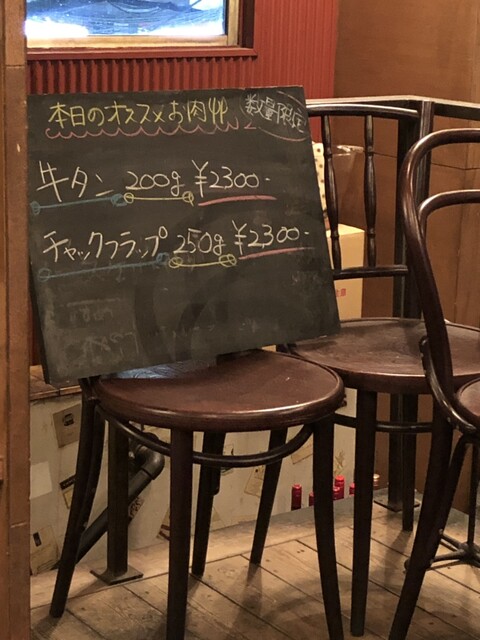 本日のオススメお肉!!! 数量限定
牛タン 200g ¥2300-
チャックフラップ 250g ¥2300-